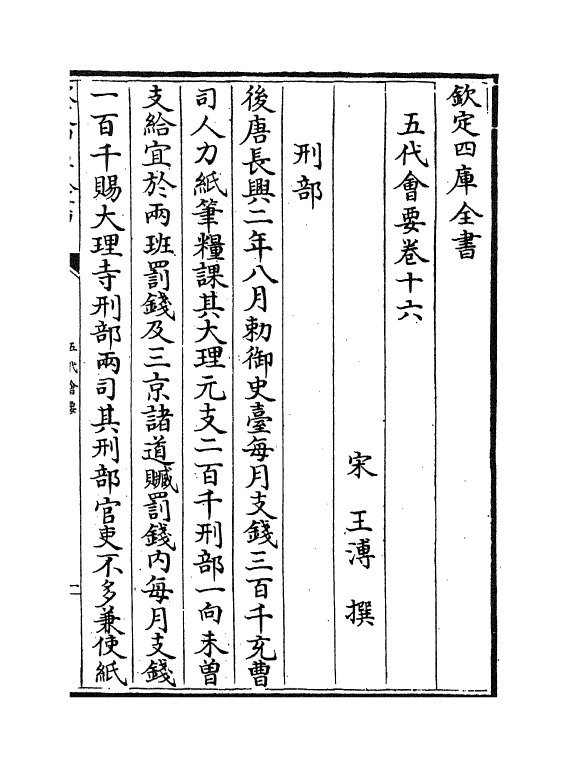 欽定四庫全書
五代會要卷十六
宋 王溥 撰
刑部
後唐長興二年八月勅御史臺每月支錢三百千充曹
司人力紙筆糧課其大理元支二百千刑部一向未曾
支給宜於兩班罰錢及三京諸道贓罰錢内每月支錢
一百千賜大理寺刑部兩司其刑部官吏不多兼使紙
五代會要